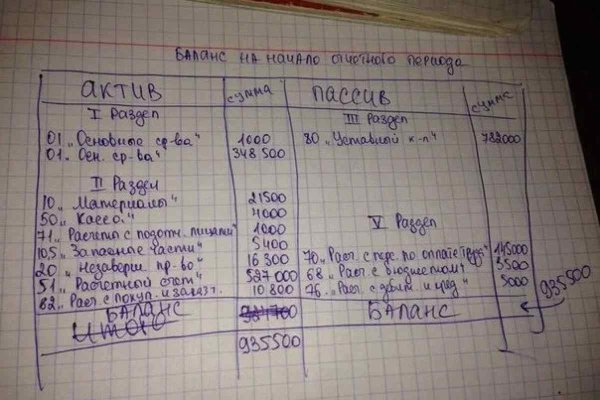 Баланс на начало отчётного периода
Актив сумма Пассив сумма
I Раздел III Раздел
01 „Основные ср-ва" 1000 80 „Уставный к-л" 782000
01 „Осн. ср-ва" 348 500
II Раздел
10 „Материалы" 21500
50 „Касса" 4000 V Раздел
71 „Расчеты с подотч. лицами" 1000
10,5 „Запасные части" 5400 70 „Расч. с перс. по оплате труда" 145000
20 „Незаверш пр-во" 16 300 68 „Расч. с бюджетом" 3500
51 „Расчётный счет" 527 000 76 „Расч. с дебит. и кред" 5000
62 „Расч с покуп. и заказч. 10 800 935 500
Баланс Баланс
Итого
935500